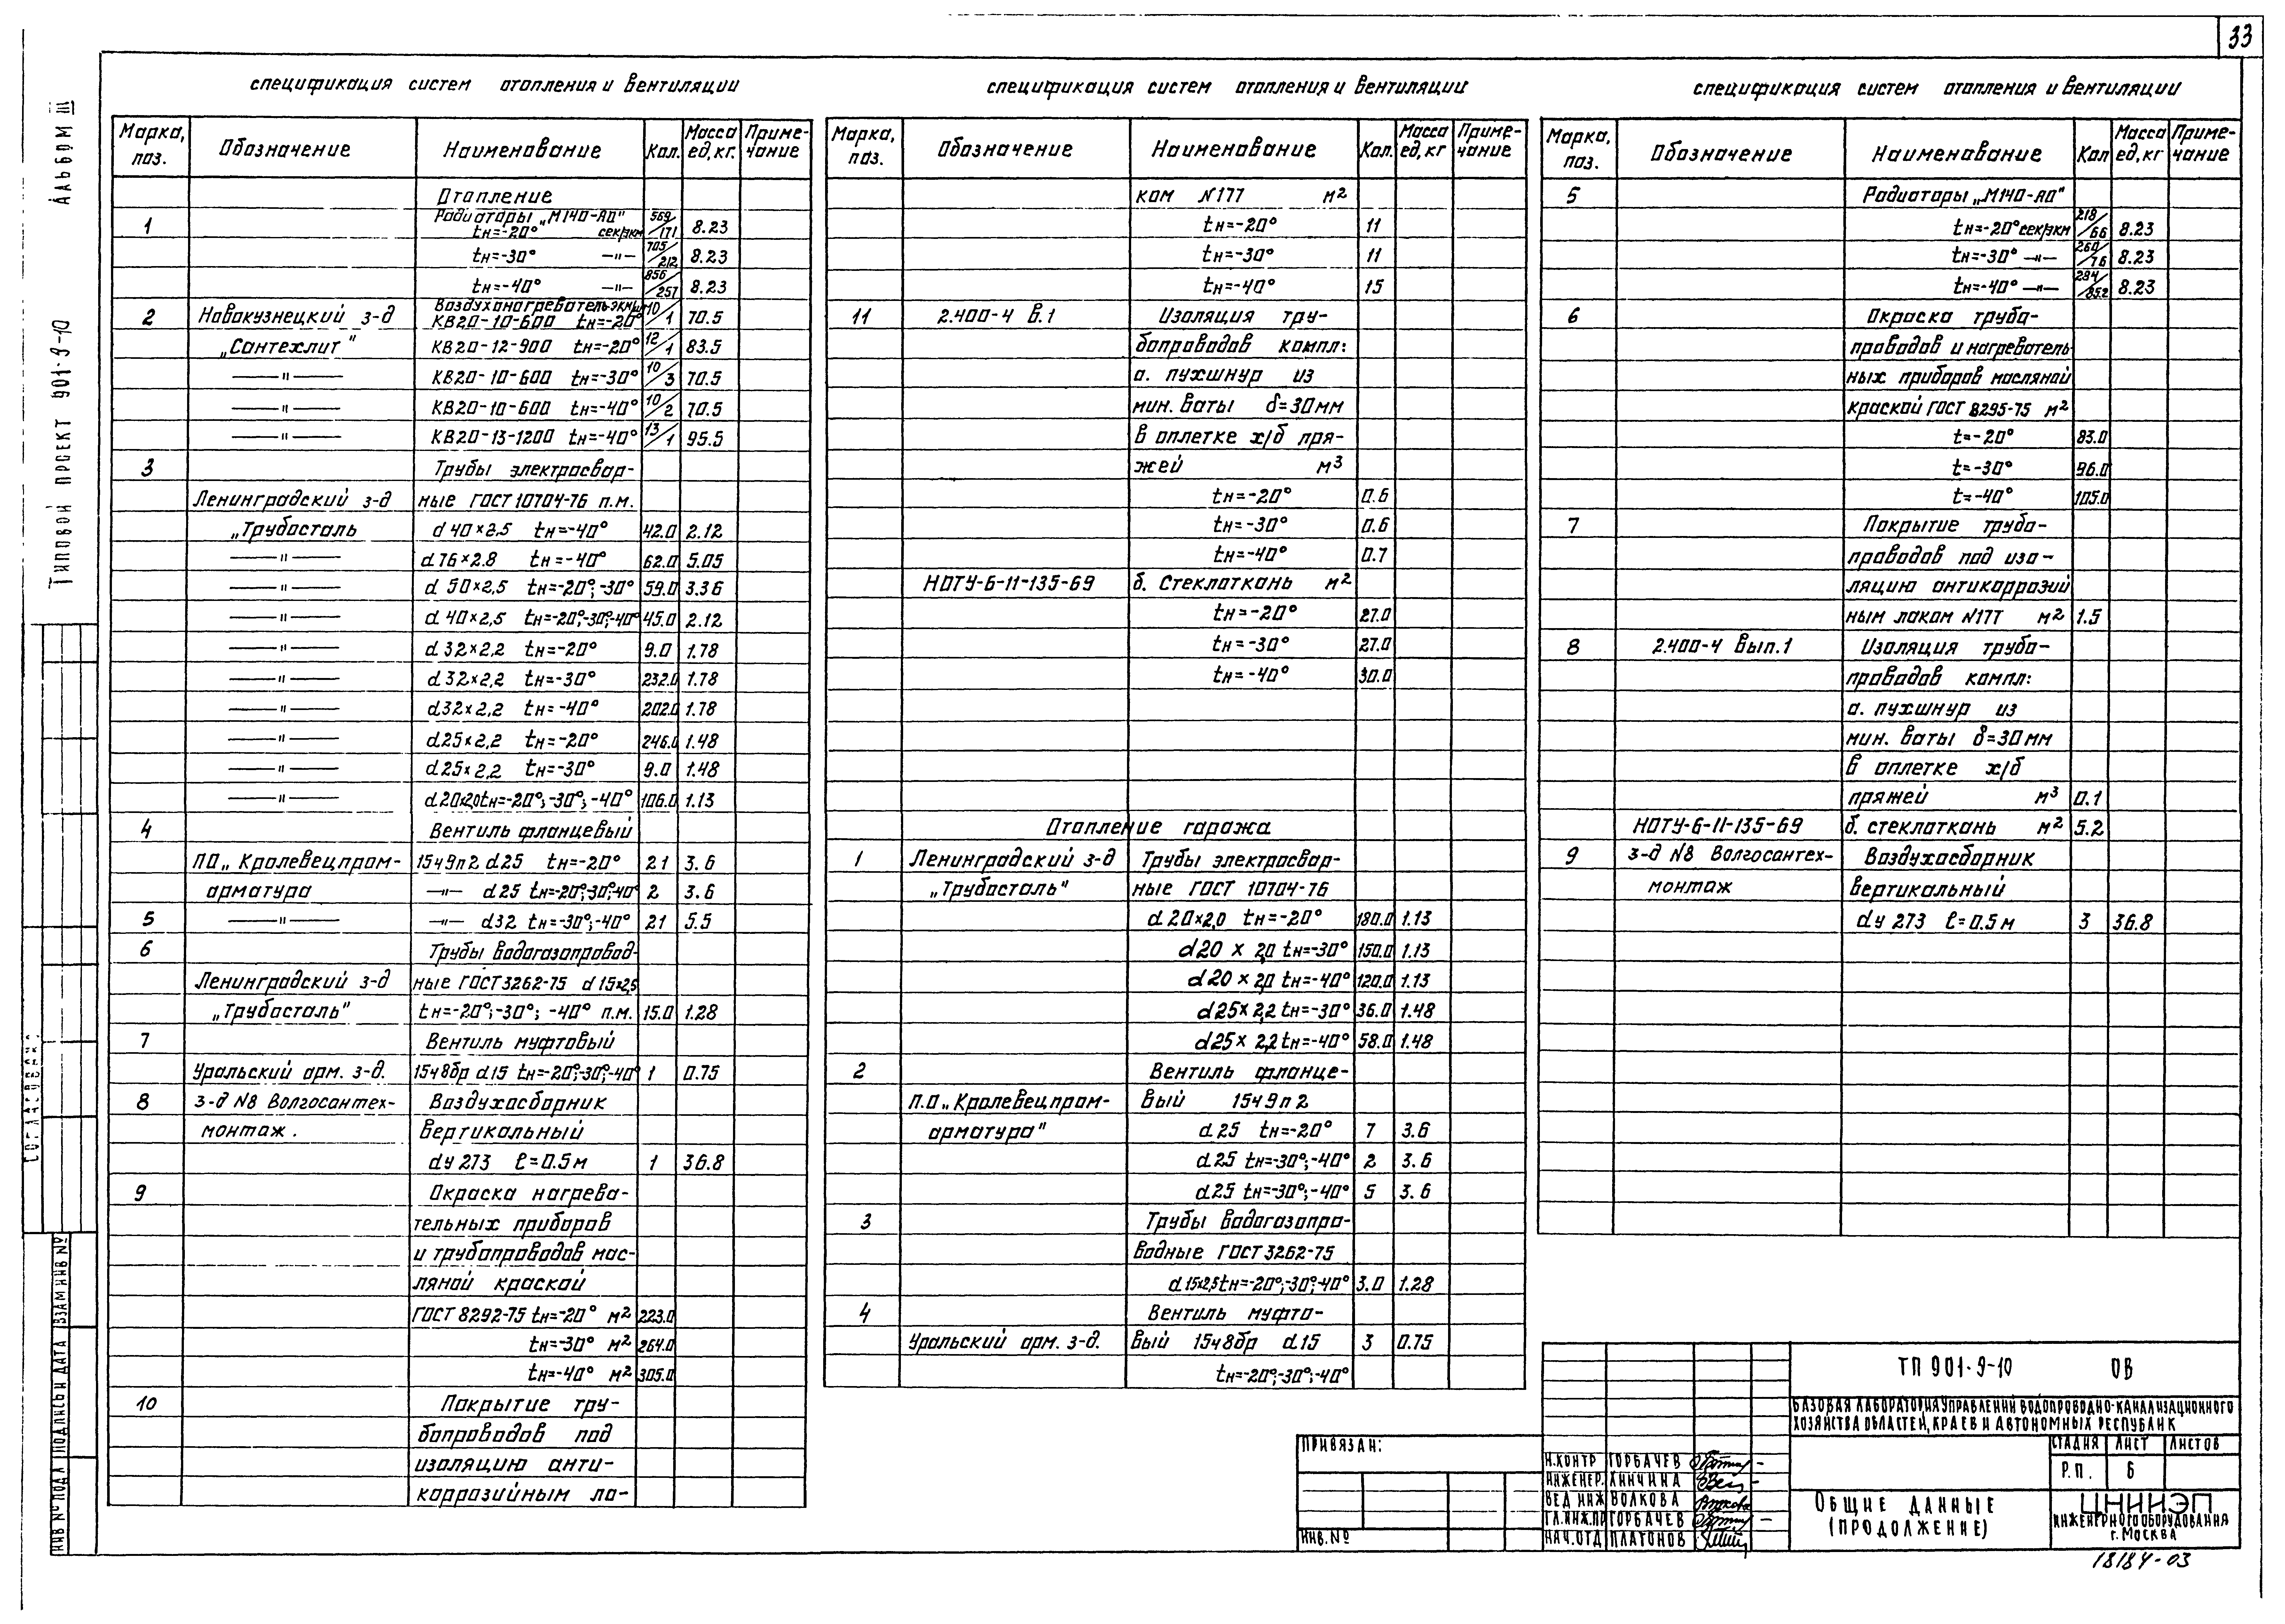 33
Альбом III
Типовой проект 901-9-10
спецификация систем отопления и вентиляции
Марка, поз. Обозначение Наименование Кол. Масса ед, кг. Приме-чание
Отопление
1 Радиаторы „М140-АО" tн=-20° сек/экм 569/171 8.23
tн=-30° —"— 705/212 8.23
tн=-40° —"— 856/257 8.23
2 Новокузнецкий з-д Воздухонагреватель экм/шт КВ20-10-600 tн=-20° 10/1 70.5
„Сантехлит" КВ20-12-900 tн=-20° 12/1 83.5
—"— КВ20-10-600 tн=-30° 10/3 70.5
—"— КВ20-10-600 tн=-40° 10/2 70.5
—"— КВ20-13-1200 tн=-40° 13/1 95.5
3 Трубы электросвар-
Ленинградский з-д ные ГОСТ 10704-76 п.м.
„Трубосталь d 40×2,5 tн=-40° 42.0 2.12
—"— d 76×2.8 tн=-40° 62.0 5.05
—"— d 50×2,5 tн=-20°,-30° 59.0 3.36
—"— d 40×2,5 tн=-20°,-30°,-40° 45.0 2.12
—"— d 32×2,2 tн=-20° 9.0 1.78
—"— d 32×2,2 tн=-30° 232.0 1.78
—"— d32×2,2 tн=-40° 202.0 1.78
—"— d25×2,2 tн=-20° 246.0 1.48
—"— d25×2,2 tн=-30° 9.0 1.48
—"— d20×2,0 tн=-20°; -30°; -40° 106.0 1.13
4 Вентиль фланцевый
ПО „Кролевецпром- 15ч9п2 d25 tн=-20° 21 3.6
арматура —"— d25 tн=-20°,-30°,-40° 2 3.6
5 —"— —"— d32 tн=-30°;-40° 21 5.5
6 Трубы водогазопровод-
Ленинградский з-д ные ГОСТ 3262-75 d 15×2,5
„Трубосталь" tн=-20°;-30°; -40° п.м. 15.0 1.28
7 Вентиль муфтовый
Уральский арм. з-д. 15ч8бр d.15 tн=-20°,-30°,-40° 1 0.75
8 з-д N8 Волгосантех- Воздухосборник
монтаж. вертикальный
dу 273 ℓ=0.5м 1 36.8
9 Окраска нагрева-
тельных приборов
и трубопроводов мас-
ляной краской
ГОСТ 8292-75 tн=-20° м² 223.0
tн=-30° м² 264.0
tн=-40° м² 305.0
10 Покрытие тру-
бопроводов под
изоляцию анти-
коррозийным ла-
спецификация систем отопления и вентиляции
Марка, поз. Обозначение Наименование Кол. Масса ед, кг Приме-чание
ком N177 м²
tн=-20° 11
tн=-30° 11
tн=-40° 15
11 2.400-4 в.1 Изоляция тру-
бопроводов компл:
а. пухшнур из
мин. ваты δ=30мм
в оплетке х/б пря-
жей м³
tн=-20° 0.6
tн=-30° 0.6
tн=-40° 0.7
НОТУ-6-11-135-69 б. Стеклоткань м²
tн=-20° 27.0
tн=-30° 27.0
tн=-40° 30.0
Отопление гаража
1 Ленинградский з-д Трубы электросвар-
„Трубосталь" ные ГОСТ 10704-76
d 20×2,0 tн=-20° 180.0 1.13
d20 × 2,0 tн=-30° 150.0 1.13
d20 × 2,0 tн=-40° 120.0 1.13
d25×2,2 tн=-30° 36.0 1.48
d25× 2,2 tн=-40° 58.0 1.48
2 Вентиль фланце-
П.О „Кролевецпром- вый 15ч9п2
арматура" d.25 tн=-20° 7 3.6
d.25 tн=-30°;-40° 2 3.6
d.25 tн=-30°;-40° 5 3.6
3 Трубы водогазопро-
водные ГОСТ 3262-75
d 15×2,5 tн=-20°,-30°,-40° 3.0 1.28
4 Вентиль муфто-
Уральский арм. з-д. вый 15ч8бр d.15 3 0.75
tн=-20°,-30°,-40°
спецификация систем отопления и вентиляции
Марка, поз. Обозначение Наименование Кол Масса ед, кг Приме-чание
5 Радиаторы „М140-АО"
tн=-20° сек/экм 218/66 8.23
tн=-30° —"— 260/76 8.23
tн=-40° —"— 284/852 8.23
6 Окраска трубо-
проводов и нагреватель
ных приборов масляной
краской ГОСТ 8295-75 м²
t=-20° 83.0
t=-30° 96.0
t=-40° 105.0
7 Покрытие трубо-
проводов под изо-
ляцию антикоррозий
ным лаком N177 м² 1.5
8 2.400-4 Вып.1 Изоляция трубо-
проводов компл:
а. пухшнур из
мин. ваты δ=30мм
в оплетке х/б
пряжей м³ 0.1
НОТУ-6-11-135-69 б. стеклоткань м² 5.2
9 з-д N8 Волгосантех- Воздухосборник
монтаж вертикальный
dу 273 ℓ=0.5м 3 36.8
Согласовано
Инв № подл Подпись и дата Взам инв №
Привязан:
Инв. №
Н.контр Горбачев
Инженер.
Вед инж Волкова
Гл.инж.пр Горбачев
Нач.отд Платонов
ТП 901-9-10 ОВ
Базовая лаборатория управлений водопроводно-канализационного
хозяйства областей, краев и автономных республик
Стадия Лист Листов
Р.П. 6
Общие данные
(продолжение)
ЦНИИЭП
инженерного оборудования
г. Москва
18184-03